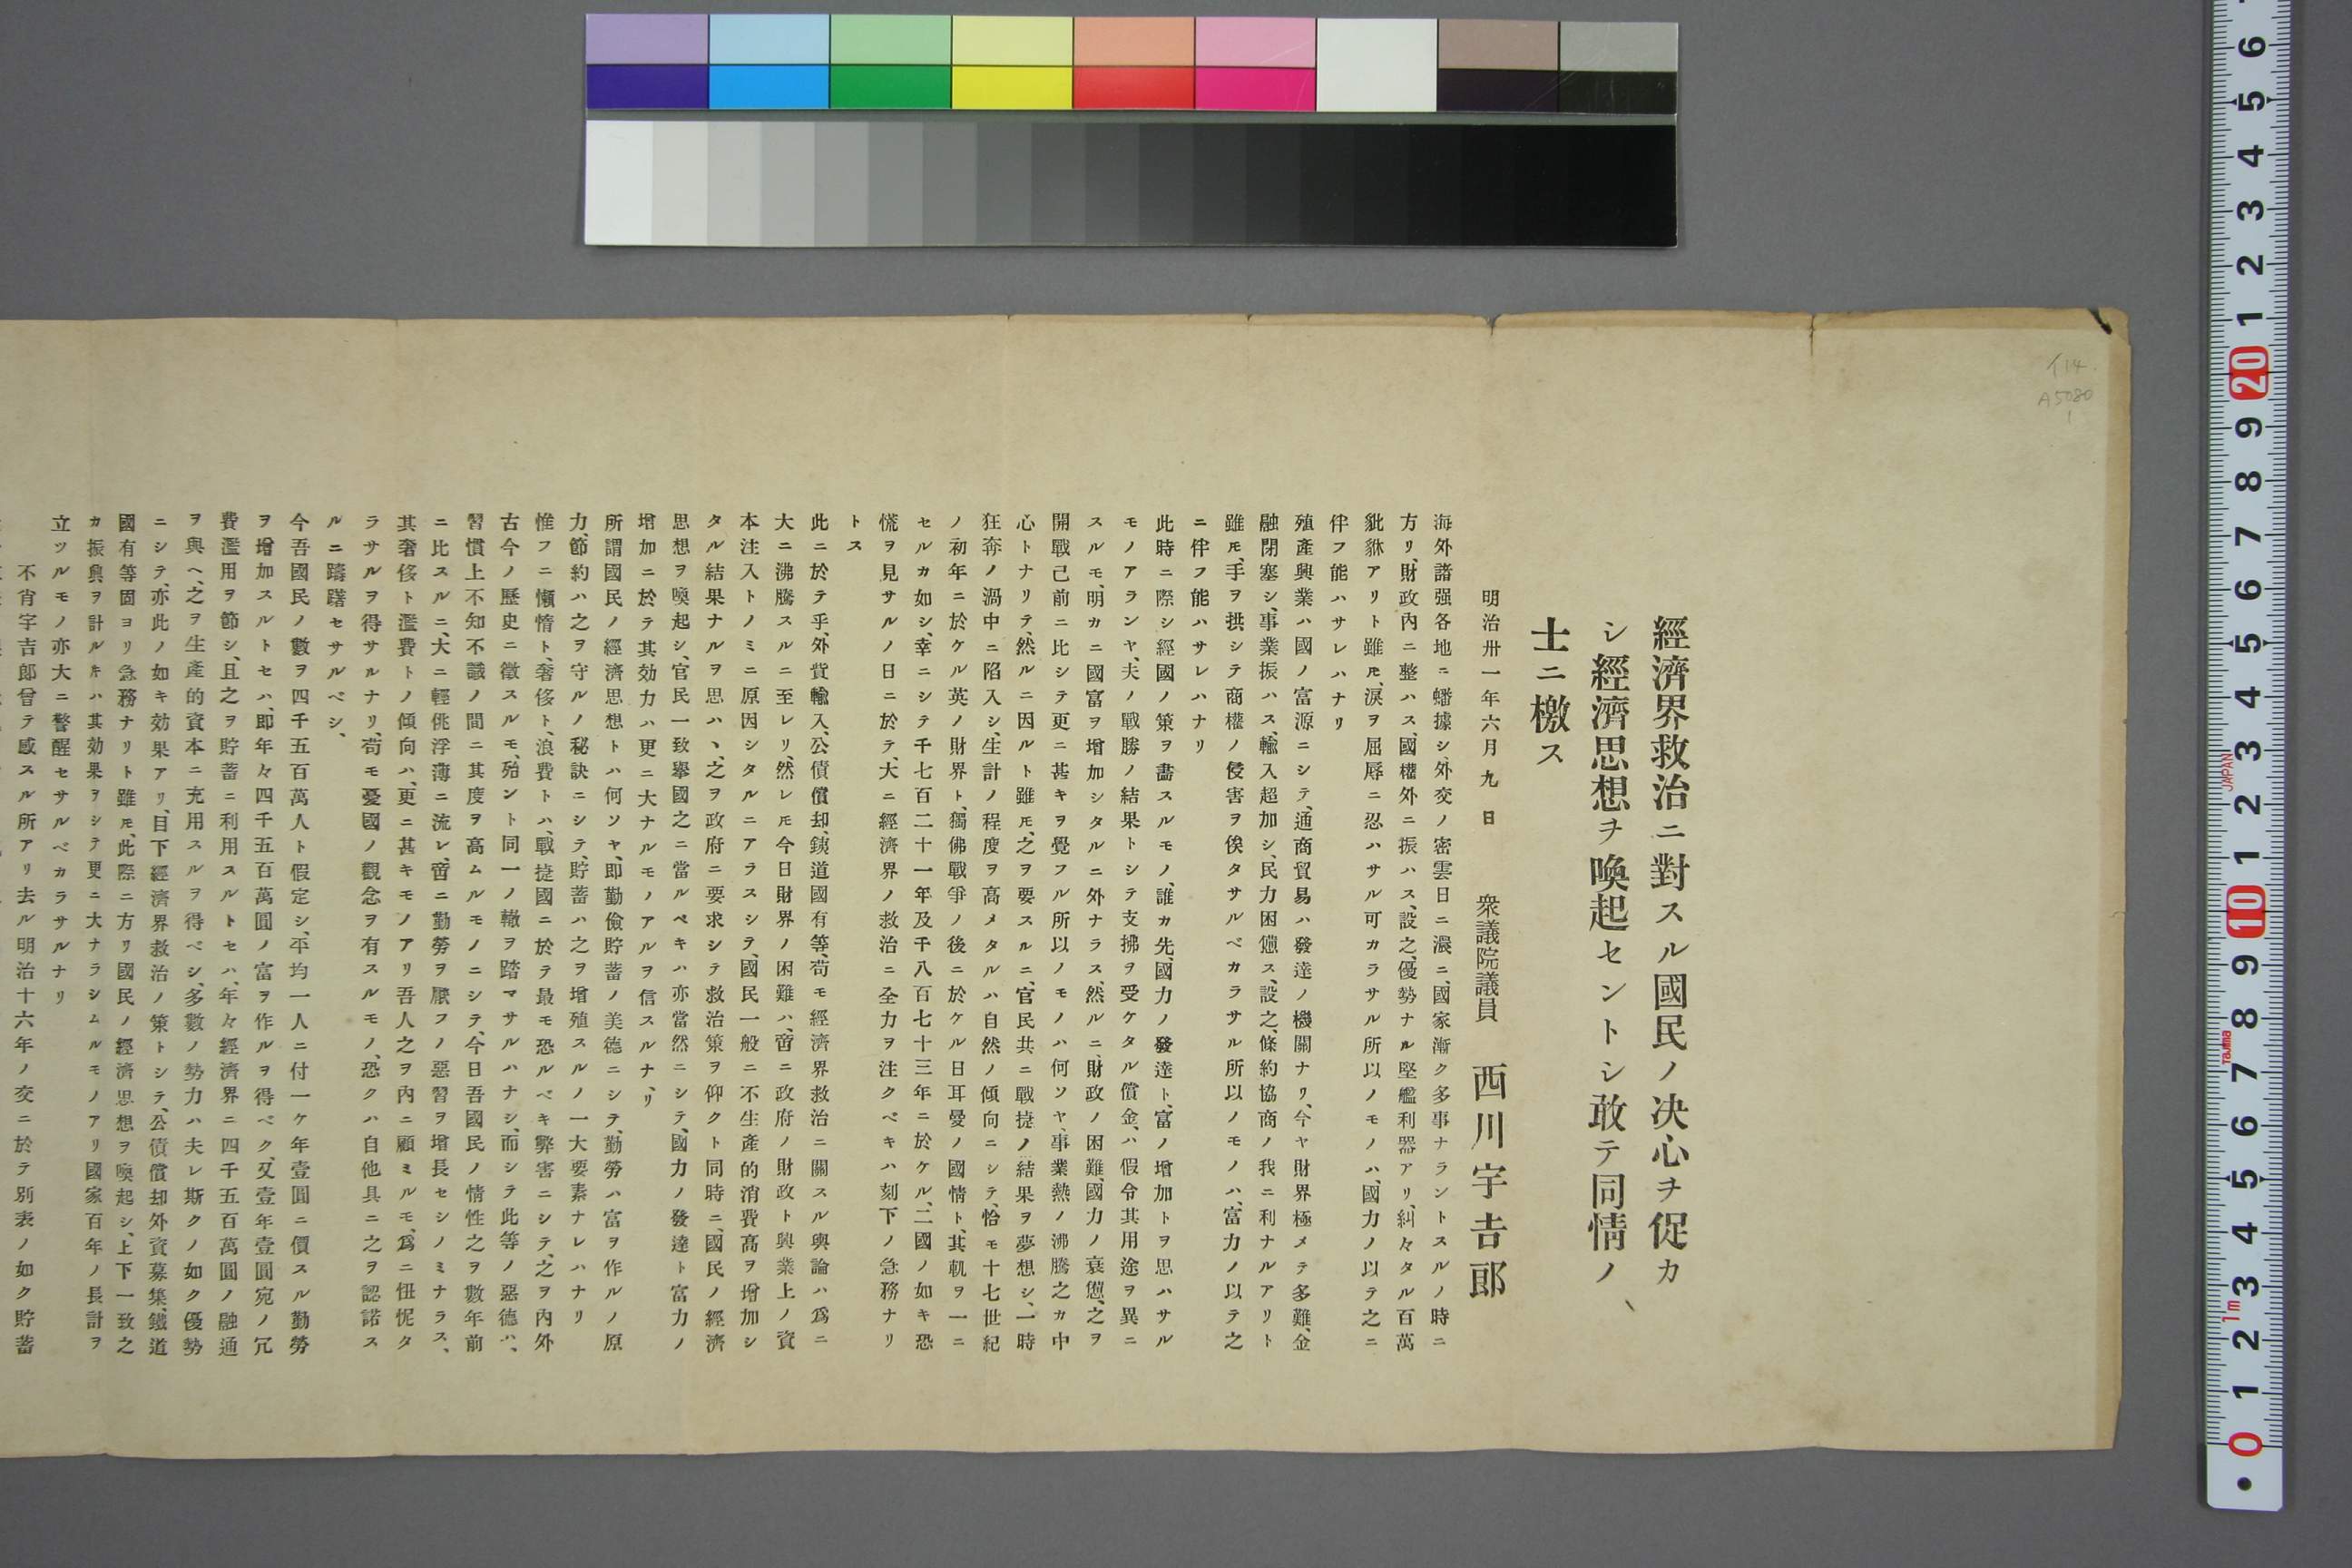 經濟界救治ニ對スル國民ノ决心ヲ促カ
シ經濟思想ヲ喚起セントシ敢テ同情ノ
士ニ檄ス
明治卅一年六月九日 衆議院議員 西川宇吉郎
海外諸强各地ニ蟠據シ、外交ノ密雲日ニ濃ニ、國家漸ク多事ナラントスルノ時ニ
方リ、財政內ニ整ハス、國權外ニ振ハス、設之、優勢ナル堅艦利器アリ、糾々タル百萬
貔貅アリト雖モ、淚ヲ屈辱ニ忍ハサル可カラサル所以ノモノハ、國力ノ以テ之ニ
伴フ能ハサレハナリ
殖產興業ハ國ノ富源ニシテ、通商貿易ハ發達ノ機關ナリ、今ヤ財界極メテ多難、金
融閉塞シ、事業振ハス、輸入超加シ、民力困憊ス、設之、條約協商ノ我ニ利ナルアリト
雖モ、手ヲ拱シテ商權ノ侵害ヲ俟タサルベカラサル所以ノモノハ、富力ノ以テ之
ニ伴フ能ハサレハナリ
此時ニ際シ經國ノ策ヲ畵スルモノ、誰カ先、國力ノ發達ト、富ノ增加トヲ思ハサル
モノアランヤ、夫ノ戰勝ノ結果トシテ支拂ヲ受ケタル償金、ハ假令其用途ヲ異ニ
スルモ、明カニ國富ヲ增加シタルニ外ナラス、然ルニ、財政ノ困難、國力ノ衰憊、之ヲ
開戰己前ニ比シテ更ニ甚キヲ覺フル所以ノモノハ何ソヤ、事業熱ノ沸騰之カ中
心トナリテ、然ルニ因ルト雖モ、之ヲ要スルニ、官民共ニ戰捷ノ結果ヲ夢想シ、一時
狂奔ノ渦中ニ陷入シ、生計ノ程度ヲ高メタルハ自然ノ傾向ニシテ、恰モ十七世紀
ノ初年ニ於ケル英ノ財界ト、獨佛戰爭ノ後ニ於ケル日耳曼ノ國情ト、其軌ヲ一ニ
セルカ如シ、幸ニシテ千七百二十一年及千八百七十三年ニ於ケル、二國ノ如キ恐
慌ヲ見サルノ日ニ於テ、大ニ經濟界ノ救治ニ全力ヲ注クベキハ刻下ノ急務ナリ
トス
此ニ於テ乎、外貨輸入、公債償却、鐵道國有等、苟モ經濟界救治ニ關スル輿論ハ爲ニ
大ニ沸騰スルニ至レリ、然レモ今日財界ノ困難ハ、啻ニ政府ノ財政ト興業上ノ資
本注入トノミニ原因シタルニアラスシテ、國民一般ニ不生產的消費高ヲ增加シ
タル結果ナルヲ思ハヽ、之ヲ政府ニ要求シテ救治策ヲ仰クト同時ニ、國民ノ經濟
思想ヲ喚起シ、官民一致擧國之ニ當ルベキハ亦當然ニシテ、國力ノ發達ト富力ノ
增加ニ於テ其効力ハ更ニ大ナルモノアルヲ信スルナ、リ
所謂國民ノ經濟思想トハ何ソヤ、即勤儉貯蓄ノ美德ニシテ、勤勞ハ富ヲ作ルノ原
力、節約ハ之ヲ守ルノ秘訣ニシテ、貯蓄ハ之ヲ增殖スルノ一大要素ナレハナリ
惟フニ懶惰ト、奢侈ト、浪費トハ、戰捷國ニ於テ最モ恐ルベキ弊害ニシテ、之ヲ內外
古今ノ歷史ニ徵スルモ、殆ント同一ノ轍ヲ踏マサルハナシ、而シテ此等ノ惡德ハ、
習慣上不知不識ノ間ニ其度ヲ高ムルモノニシテ、今日吾國民ノ情性之ヲ數年前
ニ比スルニ、大ニ輕佻浮薄ニ流レ、啻ニ勤勞ヲ厭フノ惡習ヲ增長セシノミナラス、
其奢侈ト濫費トノ傾向ハ、更ニ甚キモノアリ吾人之ヲ內ニ顧ミルモ、爲ニ忸怩タ
ラサルヲ得サルナリ、苟モ憂國ノ觀念ヲ有スルモノ、恐クハ自他具ニ之ヲ認諾ス
ルニ躊躇セサルベシ、
今吾國民ノ數ヲ四千五百萬人ト假定シ、平均一人ニ付一ケ年壹圓ニ價スル勤勞
ヲ增加スルトセハ、即年々四千五百萬圓ノ富ヲ作ルヲ得ベク、又壹年壹圓宛ノ冗
費濫用ヲ節シ、且之ヲ貯蓄ニ利用スルトセハ、年々經濟界ニ四千五百萬圓ノ融通
ヲ與ヘ、之ヲ生產的資本ニ充用スルヲ得ベシ、多數ノ勢力ハ夫レ斯クノ如ク優勢
ニシテ、亦此ノ如キ効果アリ、目下經濟界救治ノ策トシテ、公債償却外資募集、鐵道
國有等固ヨリ急務ナリト雖モ、此際ニ方リ國民ノ經濟思想ヲ喚起シ、上下一致之
カ振興ヲ計ルキハ其効果ヲシテ更ニ大ナラシムルモノアリ國家百年ノ長計ヲ
立ツルモノ亦大ニ警醒セサルベカラサルナリ
不肖宇吉郎曾テ感スル所アリ去ル明治十六年ノ交ニ於テ別表ノ如ク貯蓄
114.
A5080
1